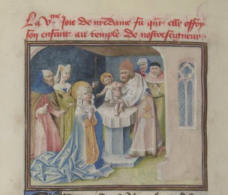 La v^me^ Joie de n̄re dame fu qūt elle offry
son enfant au temple de nostreseigneur